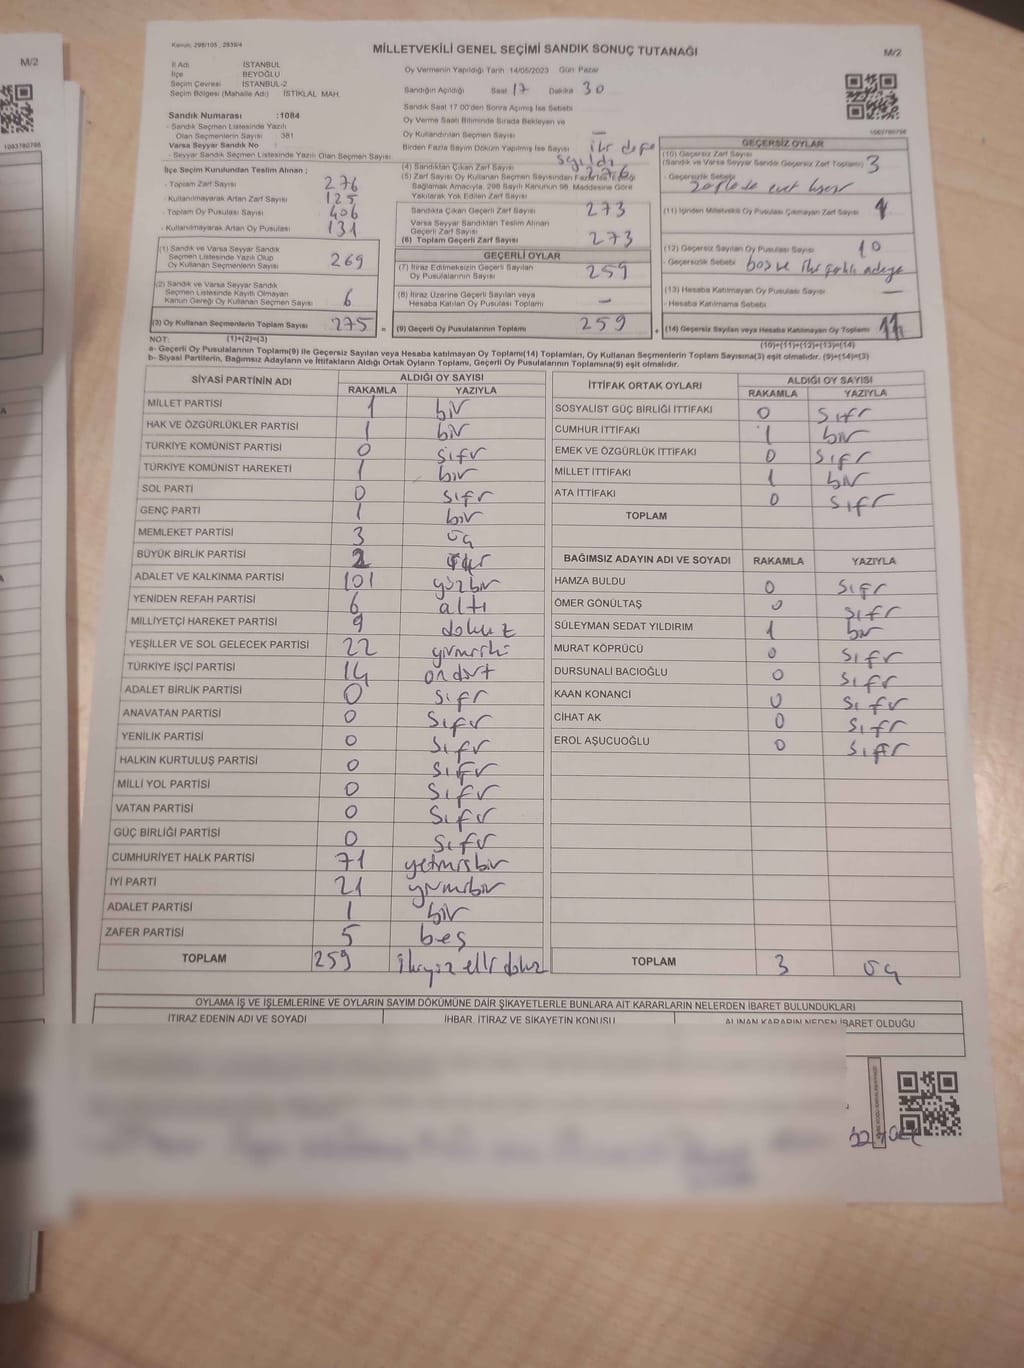 M/2
1083780786
Kanun: 298/105 , 2839/4
MİLLETVEKİLİ GENEL SEÇİMİ SANDIK SONUÇ TUTANAĞI
M/2
İl Adı İSTANBUL
İlçe BEYOĞLU
Seçim Çevresi İSTANBUL-2
Seçim Bölgesi (Mahalle Adı) İSTİKLAL MAH.
Sandık Numarası :1084
- Sandık Seçmen Listesinde Yazılı
Olan Seçmenlerin Sayısı : 381
Varsa Seyyar Sandık No :
- Seyyar Sandık Seçmen Listesinde Yazılı Olan Seçmen Sayısı
Oy Vermenin Yapıldığı Tarih :14/05/2023 Gün: Pazar
Sandığın Açıldığı Saat 17 Dakika 30
Sandık Saat 17.00'den Sonra Açılmış İse Sebebi
Oy Verme Saati Bitiminde Sırada Bekleyen ve
Oy Kullandırılan Seçmen Sayısı —
Birden Fazla Sayım Döküm Yapılmış İse Sayısı iki defa
sayıldı
1083780786
İlçe Seçim Kurulundan Teslim Alınan ;
- Toplam Zarf Sayısı 276
- Kullanılmayarak Artan Zarf Sayısı 125
- Toplam Oy Pusulası Sayısı 406
- Kullanılmayarak Artan Oy Pusulası 131
(1) Sandık ve Varsa Seyyar Sandık
Seçmen Listesinde Yazılı Olup
Oy Kullanan Seçmenlerin Sayısı 269
(2) Sandık ve Varsa Seyyar Sandık
Seçmen Listesinde Kayıtlı Olmayan
Kanun Gereği Oy Kullanan Seçmen Sayısı 6
(3) Oy Kullanan Seçmenlerin Toplam Sayısı 275 =
(4) Sandıktan Çıkan Zarf Sayısı 276
(5) Zarf Sayısı Oy Kullanan Seçmen Sayısından Fazla İse Eşitliği
Bağlamak Amacıyla, 298 Sayılı Kanunun 98. Maddesine Göre
Yakılarak Yok Edilen Zarf Sayısı
Sandıkta Çıkan Geçerli Zarf Sayısı 273
Varsa Seyyar Sandıktan Teslim Alınan
Geçerli Zarf Sayısı
(6) Toplam Geçerli Zarf Sayısı 273
GEÇERLİ OYLAR
(7) İtiraz Edilmeksizin Geçerli Sayılan
Oy Pusulalarının Sayısı 259
(8) İtiraz Üzerine Geçerli Sayılan veya
Hesaba Katılan Oy Pusulası Toplamı —
(9) Geçerli Oy Pusulalarının Toplamı 259 +
GEÇERSİZ OYLAR
(10) Geçersiz Zarf Sayısı
(Sandık ve Varsa Seyyar Sandık Geçersiz Zarf Toplamı) 3
- Geçersizlik Sebebi
(11) İçinden Milletvekili Oy Pusulası Çıkmayan Zarf Sayısı 1
(12) Geçersiz Sayılan Oy Pusulası Sayısı 10
- Geçersizlik Sebebi boş ve iki farklı adaya
(13) Hesaba Katılmayan Oy Pusulası Sayısı —
- Hesaba Katılmama Sebebi
(14) Geçersiz Sayılan veya Hesaba Katılmayan Oy Toplamı 11
NOT: (1)+(2)=(3) (10)+(11)+(12)+(13)=(14)
a- Geçerli Oy Pusulalarının Toplamı(9) ile Geçersiz Sayılan veya Hesaba katılmayan Oy Toplamı(14) Toplamları, Oy Kullanan Seçmenlerin Toplam Sayısına(3) eşit olmalıdır. (9)+(14)=(3)
b- Siyasi Partilerin, Bağımsız Adayların ve İttifakların Aldığı Oyların Toplamı, Geçerli Oy Pusulalarının Toplamına(9) eşit olmalıdır.
SİYASİ PARTİNİN ADI ALDIĞI OY SAYISI
RAKAMLA YAZIYLA
MİLLET PARTİSİ 1 bir
HAK VE ÖZGÜRLÜKLER PARTİSİ 1 bir
TÜRKİYE KOMÜNİST PARTİSİ 0 sıfır
TÜRKİYE KOMÜNİST HAREKETİ 1 bir
SOL PARTİ 0 sıfır
GENÇ PARTİ 1 bir
MEMLEKET PARTİSİ 3 üç
BÜYÜK BİRLİK PARTİSİ 2
ADALET VE KALKINMA PARTİSİ 101 yüzbir
YENİDEN REFAH PARTİSİ 6 altı
MİLLİYETÇİ HAREKET PARTİSİ 9 dokuz
YEŞİLLER VE SOL GELECEK PARTİSİ 22 yirmiiki
TÜRKİYE İŞÇİ PARTİSİ 14 ondört
ADALET BİRLİK PARTİSİ 0 sıfır
ANAVATAN PARTİSİ 0 sıfır
YENİLİK PARTİSİ 0 sıfır
HALKIN KURTULUŞ PARTİSİ 0 sıfır
MİLLİ YOL PARTİSİ 0 sıfır
VATAN PARTİSİ 0 sıfır
GÜÇ BİRLİĞİ PARTİSİ 0 sıfır
CUMHURİYET HALK PARTİSİ 71 yetmişbir
İYİ PARTİ 21 yirmibir
ADALET PARTİSİ 1 bir
ZAFER PARTİSİ 5 beş
TOPLAM 259 ikiyüz elli dokuz
İTTİFAK ORTAK OYLARI ALDIĞI OY SAYISI
RAKAMLA YAZIYLA
SOSYALİST GÜÇ BİRLİĞİ İTTİFAKI 0 sıfır
CUMHUR İTTİFAKI 1 bir
EMEK VE ÖZGÜRLÜK İTTİFAKI 0 sıfır
MİLLET İTTİFAKI 1 bir
ATA İTTİFAKI 0 sıfır
TOPLAM
BAĞIMSIZ ADAYIN ADI VE SOYADI RAKAMLA YAZIYLA
HAMZA BULDU 0 sıfır
ÖMER GÖNÜLTAŞ 0 sıfır
SÜLEYMAN SEDAT YILDIRIM 1 bir
MURAT KÖPRÜCÜ 0 sıfır
DURSUNALİ BACIOĞLU 0 sıfır
KAAN KONANCİ 0 sıfır
CİHAT AK 0 sıfır
EROL AŞUCUOĞLU 0 sıfır
TOPLAM 3 üç
OYLAMA İŞ VE İŞLEMLERİNE VE OYLARIN SAYIM DÖKÜMÜNE DAİR ŞİKAYETLERLE BUNLARA AİT KARARLARIN NELERDEN İBARET BULUNDUKLARI
İTİRAZ EDENİN ADI VE SOYADI İHBAR, İTİRAZ VE ŞİKAYETİN KONUSU ALINAN KARARIN NEDEN İBARET OLDUĞU